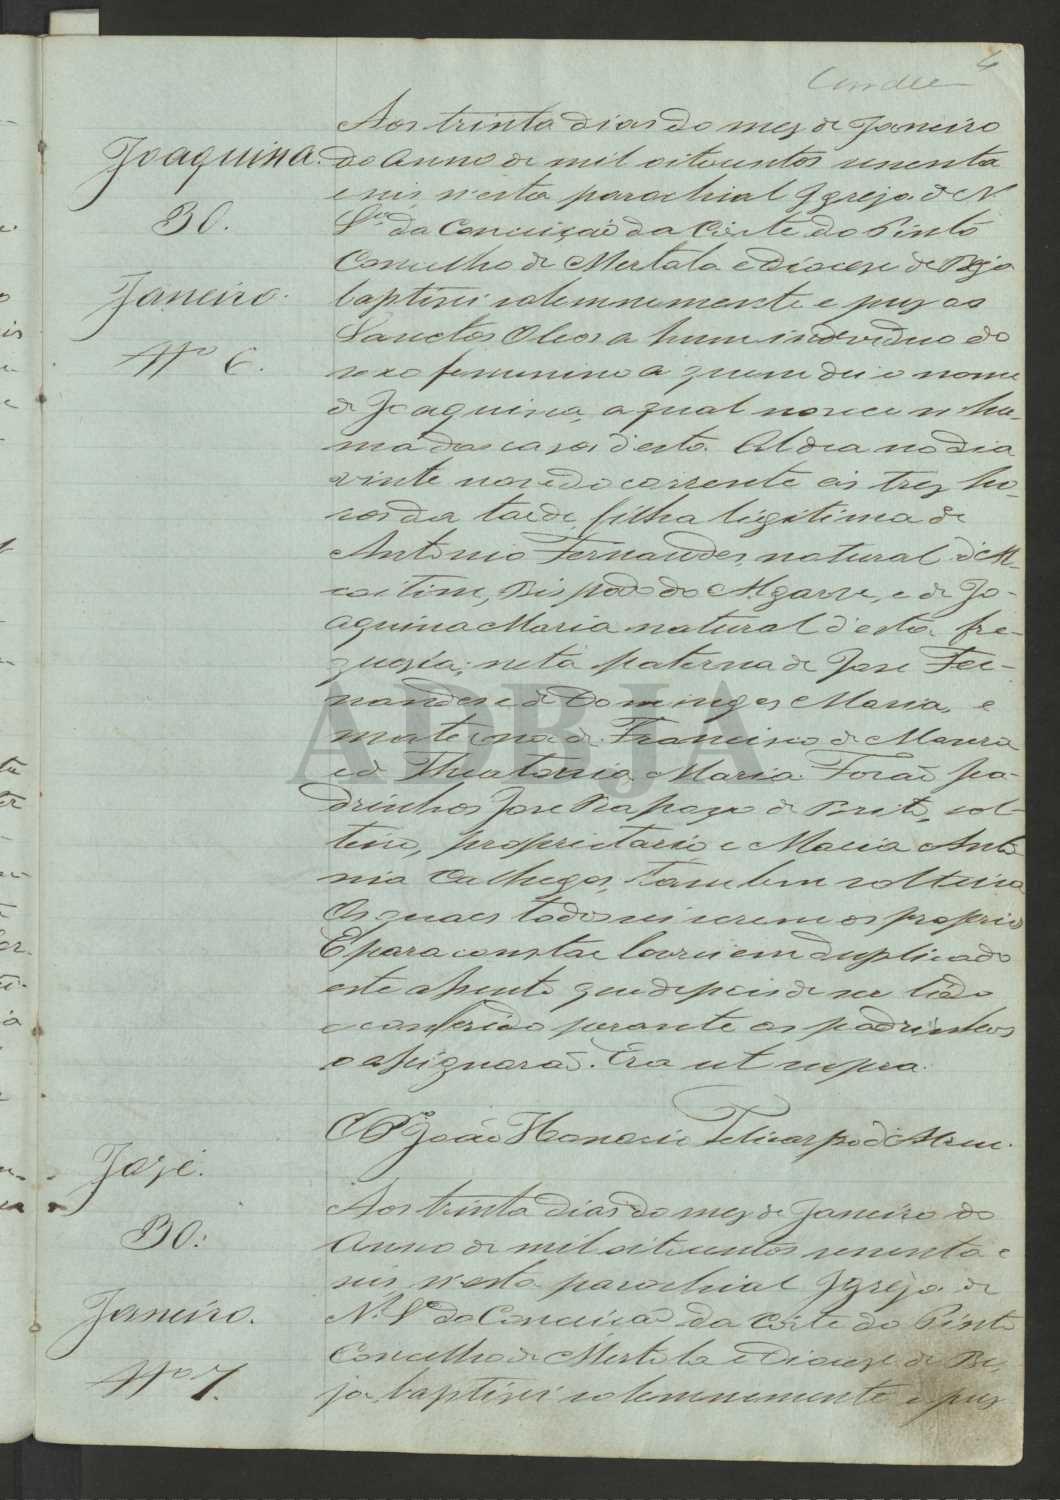 4
Joaquina.
30.
Janeiro.
Nº 6.
Aos trinta dias do mez de Janeiro
do Anno de mil oitocentos secenta
e seis n'esta parochial Igreja de N.
Srª da Conceição da Corte do Pinto
Concelho de Mertola e Diocese de Beja
baptizei solemnemente e puz os
Sanctos Oleos a hum individuo do
sexo femenino a quem dei o nome
de Joaquina, a qual nasceu n'hu-
ma das casas d'esta Aldea no dia
vinte nove do corrente ás trez ho-
ras da tarde, filha legitima de
Antonio Fernandes, natural d'M-
coitim, Bispado do Algarve, e de Jo-
aquina Maria natural d'esta fre-
guezia; neta paterna de Jose Fer-
nandes e de Domingas Maria, e
materna de Francisco de Moura
e de Theatonia Maria. Forão pa-
drinhos Jose Rapozo de Brito, sol-
teiro, proprietario e Maria Anto
nia Calhegas, tambem solteira
Os quaes todos sei serem os proprios
E para constar lavrei em duplicado
este assento que depois de ser lido
e conferido perante os padrinhos
o assignarão. Era ut supra.
O Pº João Honorio Policarpo d'
José.
30.
Janeiro.
Nº 7.
Aos trinta dias do mez de Janeiro do
Anno de mil oitocentos secenta e
seis n'esta parochial Igreja de
N. Sª da Conceição da Corte do Pinto
Concelho de Mertola e Diocese de Be
ja baptizei solemnemente e puz
ADBJA